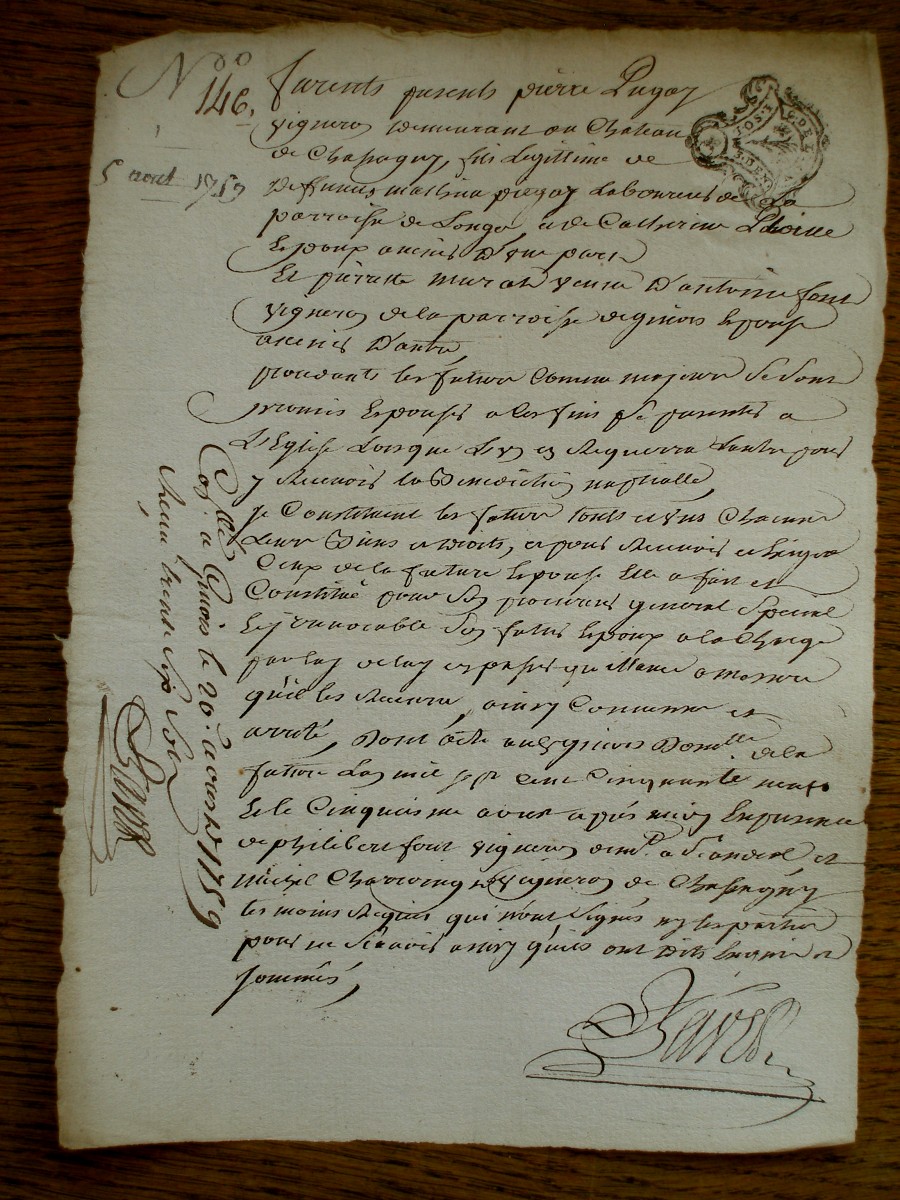 N° 146.
5 aout 1759
furents presents pierre Pugay
vigneron demeurant au Chateau
de Chassagny, fils legittime de
deffunct mathieu pugay Laboureur de La
parroisse de Longe, et de Catherine
Epoux avenir D'une part
Et pierrette murat veuve D'antoine font
vigneron de la parroisse de givors Epouse
avenir D'autre,
procedants les futurs comme majeurs se sont
promis Epouser a ces fins se presenter a
L'Eglise Lorsque L'un en Requerra L'autre pour
y Recevoir la Benediction nuptialle,
se Constituent les futurs touts et uns Chacuns
Leurs Biens et droits, et pour Recevoir et Exiger
Ceux de la future Epouse Elle a fait et
Constitué pour son procureur general special
Et irrevocable son futur Epoux a la Charge
par luy de luy en passer quittance a mesure
qu'il les Recevra, ainsy Convenu et
arreté, Dont acte audit givors Domlle de la
future L'an mil sept cent cinquante neuf
Et le cinquieme aoust après midy En presence
de philibert font vigneron demt a St andeol et
michel vigneron de Chassagny
temoins Requis qui n'ont signés ny les parties
pour ne sçavoir ainsy qu'ils ont Dit Enquis et
sommés,
Conllé a Givors le 20e aoust 1759
Receu trente six sols